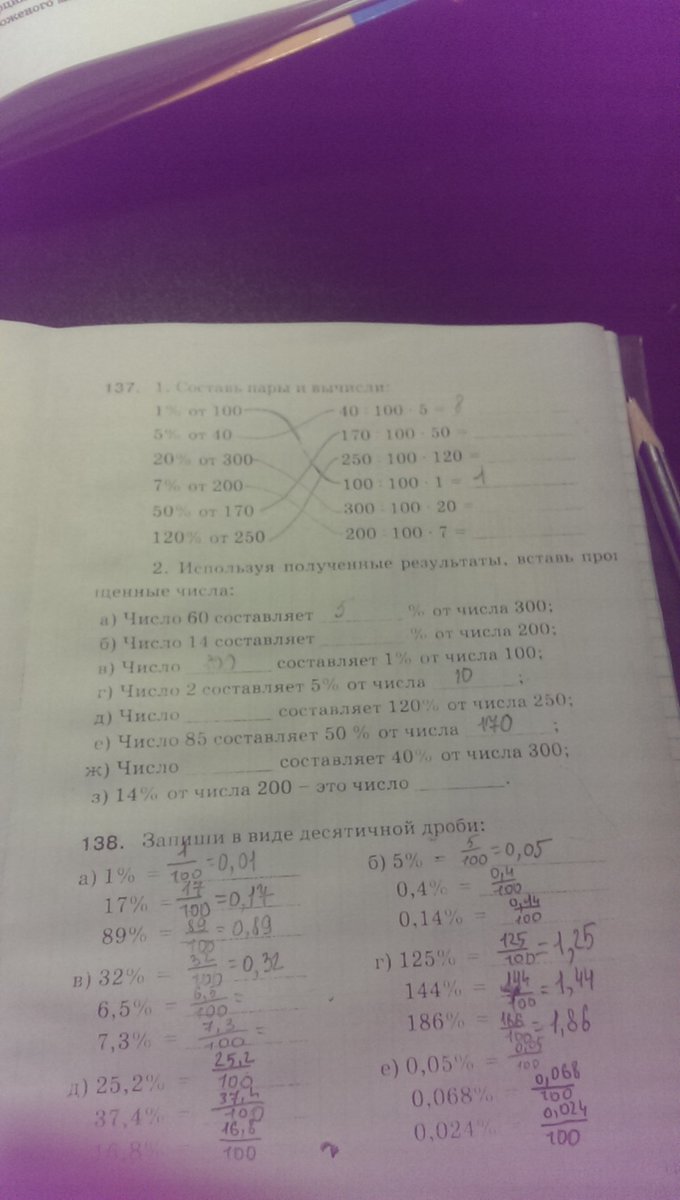 оженого
137. 1. Составь пары и вычисли:
1% от 100 40 : 100 · 5 = 8
5% от 40 170 : 100 · 50 =
20% от 300 250 : 100 · 120 =
7% от 200 100 : 100 · 1 = 1
50% от 170 300 : 100 · 20 =
120% от 250 200 : 100 · 7 =
2. Используя полученные результаты, вставь проп
щенные числа:
а) Число 60 составляет 5 % от числа 300;
б) Число 14 составляет % от числа 200;
в) Число составляет 1% от числа 100;
г) Число 2 составляет 5% от числа 10 ;
д) Число составляет 120% от числа 250;
е) Число 85 составляет 50 % от числа 170 ;
ж) Число составляет 40% от числа 300;
з) 14% от числа 200 – это число .
138. Запиши в виде десятичной дроби:
а) 1% = 1/100 = 0,01
17% = 17/100 = 0,17
89% = 89/100 = 0,89
б) 5% = 5/100 = 0,05
0,4% = 0,4/100
0,14% = 0,14/100
в) 32% = 32/100 = 0,32
6,5% = 6,5/100 =
7,3% = 7,3/100 =
г) 125% = 125/100 = 1,25
144% = 144/100 = 1,44
186% = 186/100 = 1,86
д) 25,2% = 25,2/100
37,4% = 37,4/100
16,8% = 16,8/100
е) 0,05% = 0,05/100
0,068% = 0,068/100
0,024% = 0,024/100